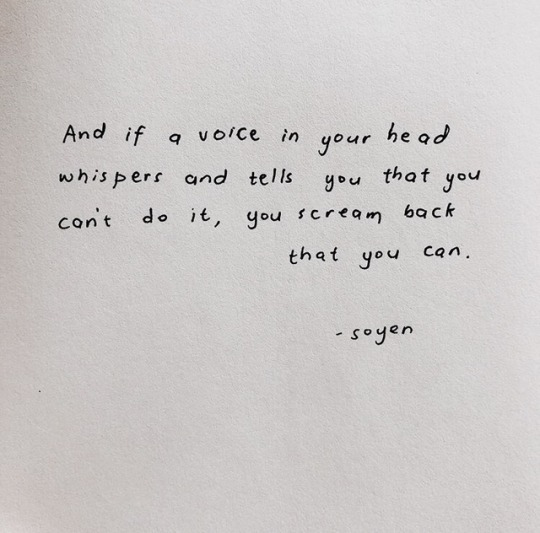 And if a voice in your head
whispers and tells you that you
can't do it, you scream back
that you can.
-soyen